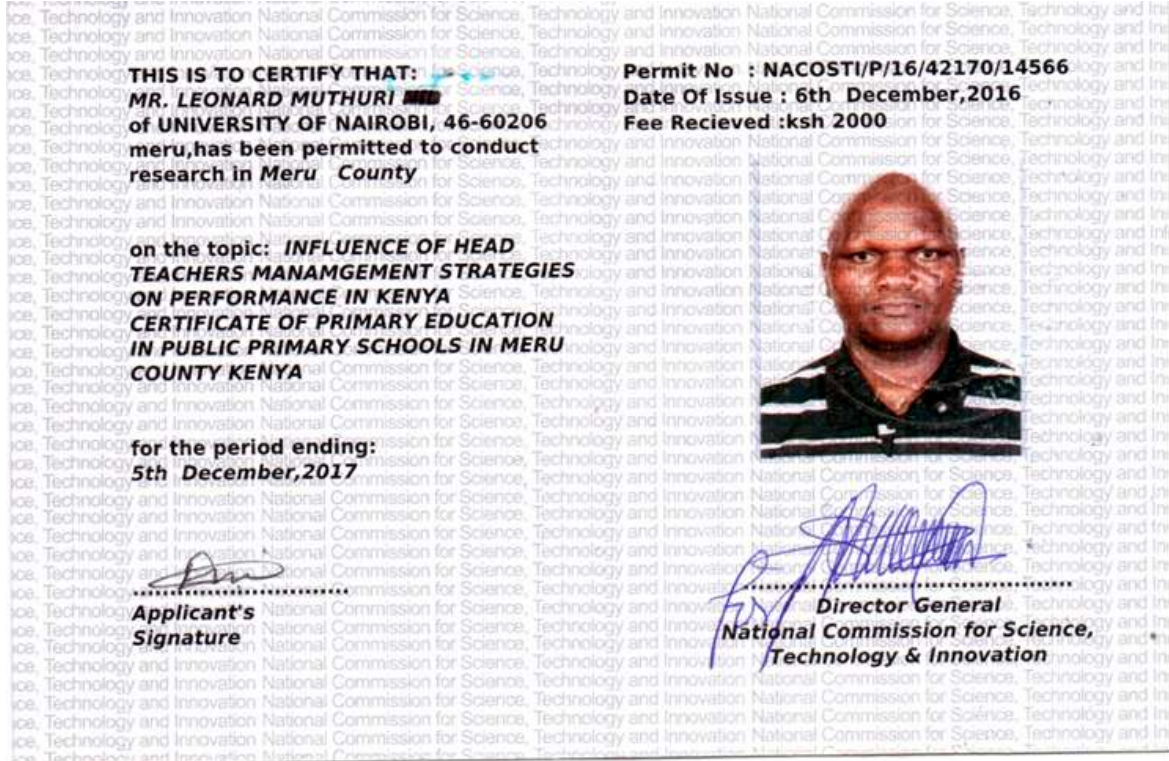 THIS IS TO CERTIFY THAT:
MR. LEONARD MUTHURI
of UNIVERSITY OF NAIROBI, 46-60206
meru,has been permitted to conduct
research in Meru County
on the topic: INFLUENCE OF HEAD
TEACHERS MANAMGEMENT STRATEGIES
ON PERFORMANCE IN KENYA
CERTIFICATE OF PRIMARY EDUCATION
IN PUBLIC PRIMARY SCHOOLS IN MERU
COUNTY KENYA
for the period ending:
5th December,2017
Applicant's
Signature
Permit No : NACOSTI/P/16/42170/14566
Date Of Issue : 6th December,2016
Fee Recieved :ksh 2000
For
Director General
National Commission for Science,
Technology & Innovation